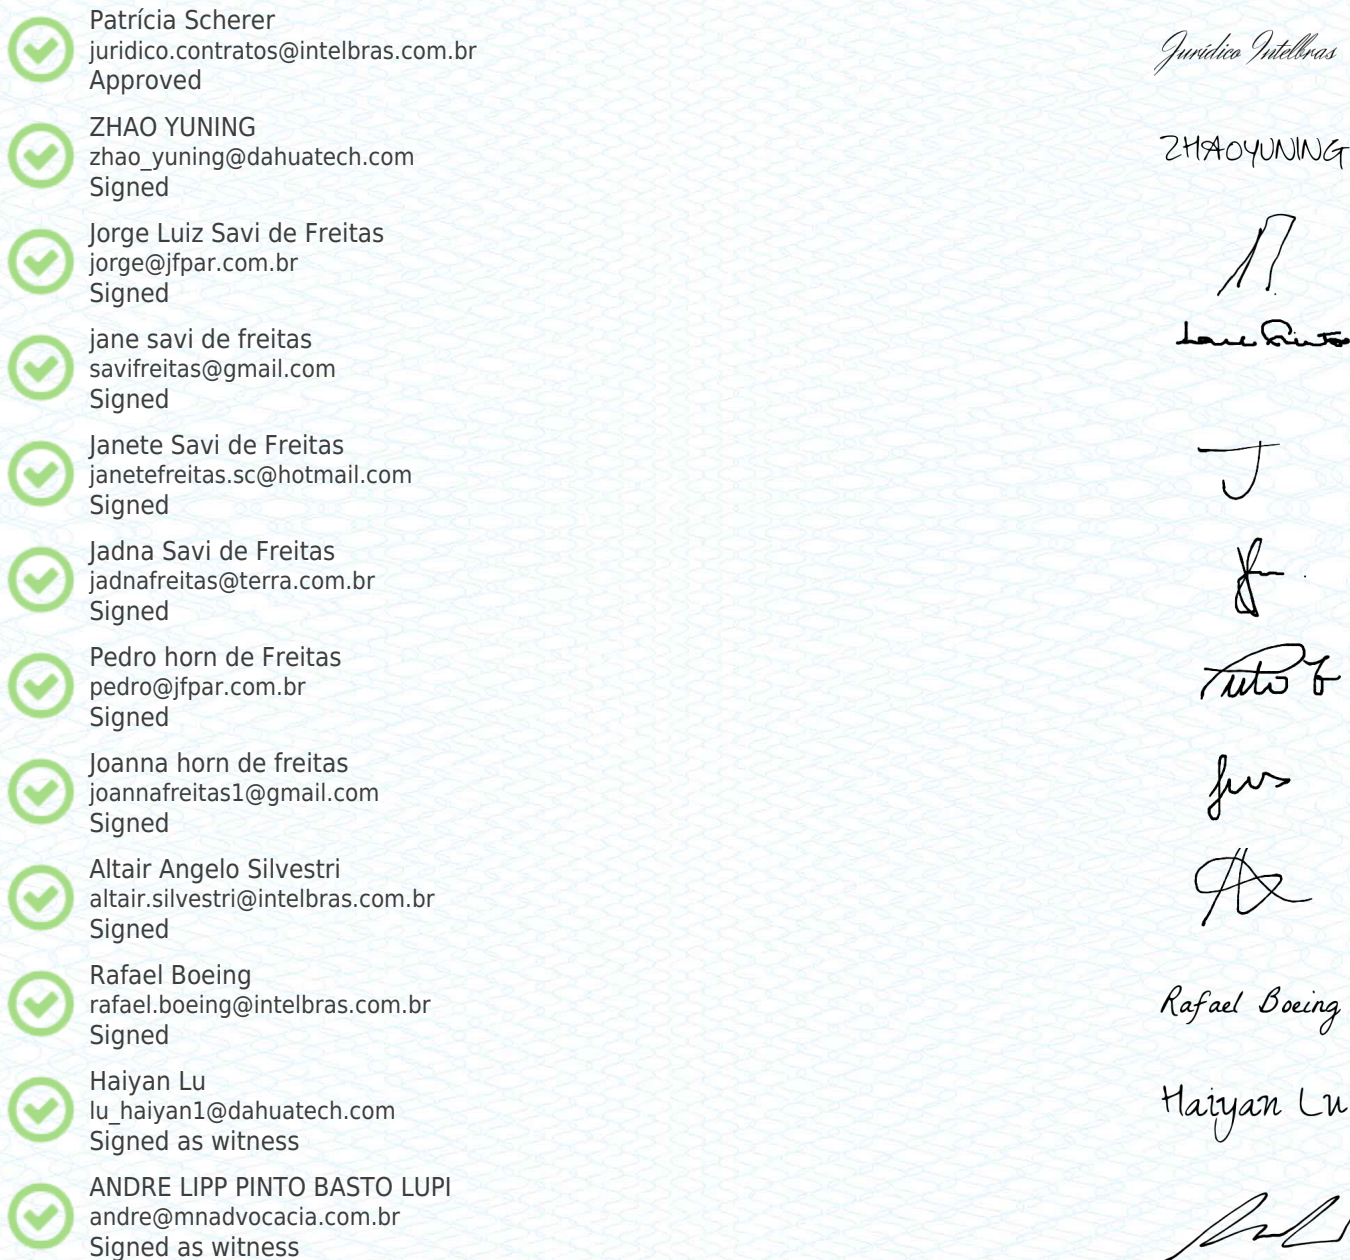 Patrícia Scherer
juridico.contratos@intelbras.com.br
Approved
Jurídico Intelbras
ZHAO YUNING
zhao_yuning@dahuatech.com
Signed
ZHAOYUNING
Jorge Luiz Savi de Freitas
jorge@jfpar.com.br
Signed
jane savi de freitas
savifreitas@gmail.com
Signed
Janete Savi de Freitas
janetefreitas.sc@hotmail.com
Signed
J
Jadna Savi de Freitas
jadnafreitas@terra.com.br
Signed
Pedro horn de Freitas
pedro@jfpar.com.br
Signed
Joanna horn de freitas
joannafreitas1@gmail.com
Signed
Altair Angelo Silvestri
altair.silvestri@intelbras.com.br
Signed
Rafael Boeing
rafael.boeing@intelbras.com.br
Signed
Rafael Boeing
Haiyan Lu
lu_haiyan1@dahuatech.com
Signed as witness
Haiyan Lu
ANDRE LIPP PINTO BASTO LUPI
andre@mnadvocacia.com.br
Signed as witness